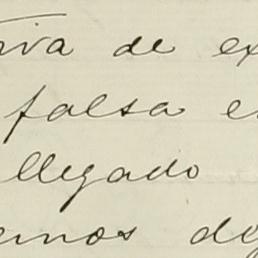 iva de ex
falsa e
llegado
emos de